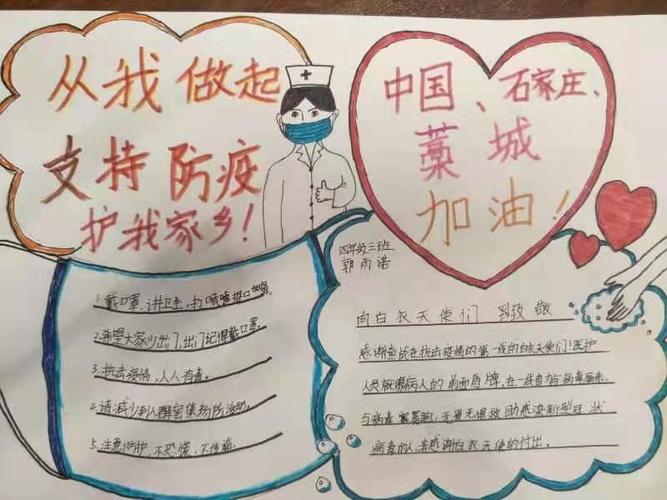 从我做起
支持防疫
护我家乡!
中国、石家庄、
藁城
加油!
四年级三班
郭雨诺
1.戴口罩,讲卫生,打喷嚏捂口鼻。
2.希望大家少出门,出门记得戴口罩。
3.抗击疫情,人人有责。
4.请减少到人群密集场所活动。
5.注意防护,不恐慌,不传谣。
向白衣天使们 致敬
感谢奋战在抗击疫情的第一线的白衣天使们!医护
人员就像病人的前面盾牌,在一线自
与病毒 无畏无惧救助感染新型冠状
病毒的人,亲感谢白衣天使的付出。